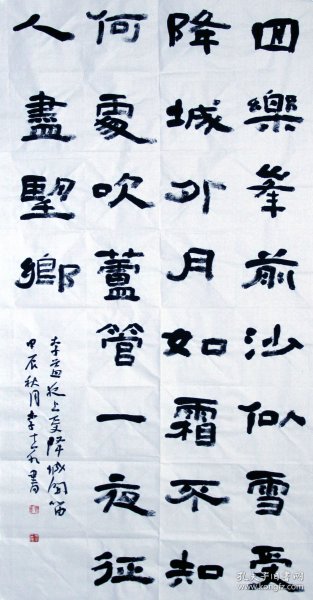 回樂峯前沙似雪受
降城外月如霜不知
何處吹蘆管一夜征
人盡望鄉
李益夜上受降城聞笛
甲辰秋月李士書
孔夫子旧书网